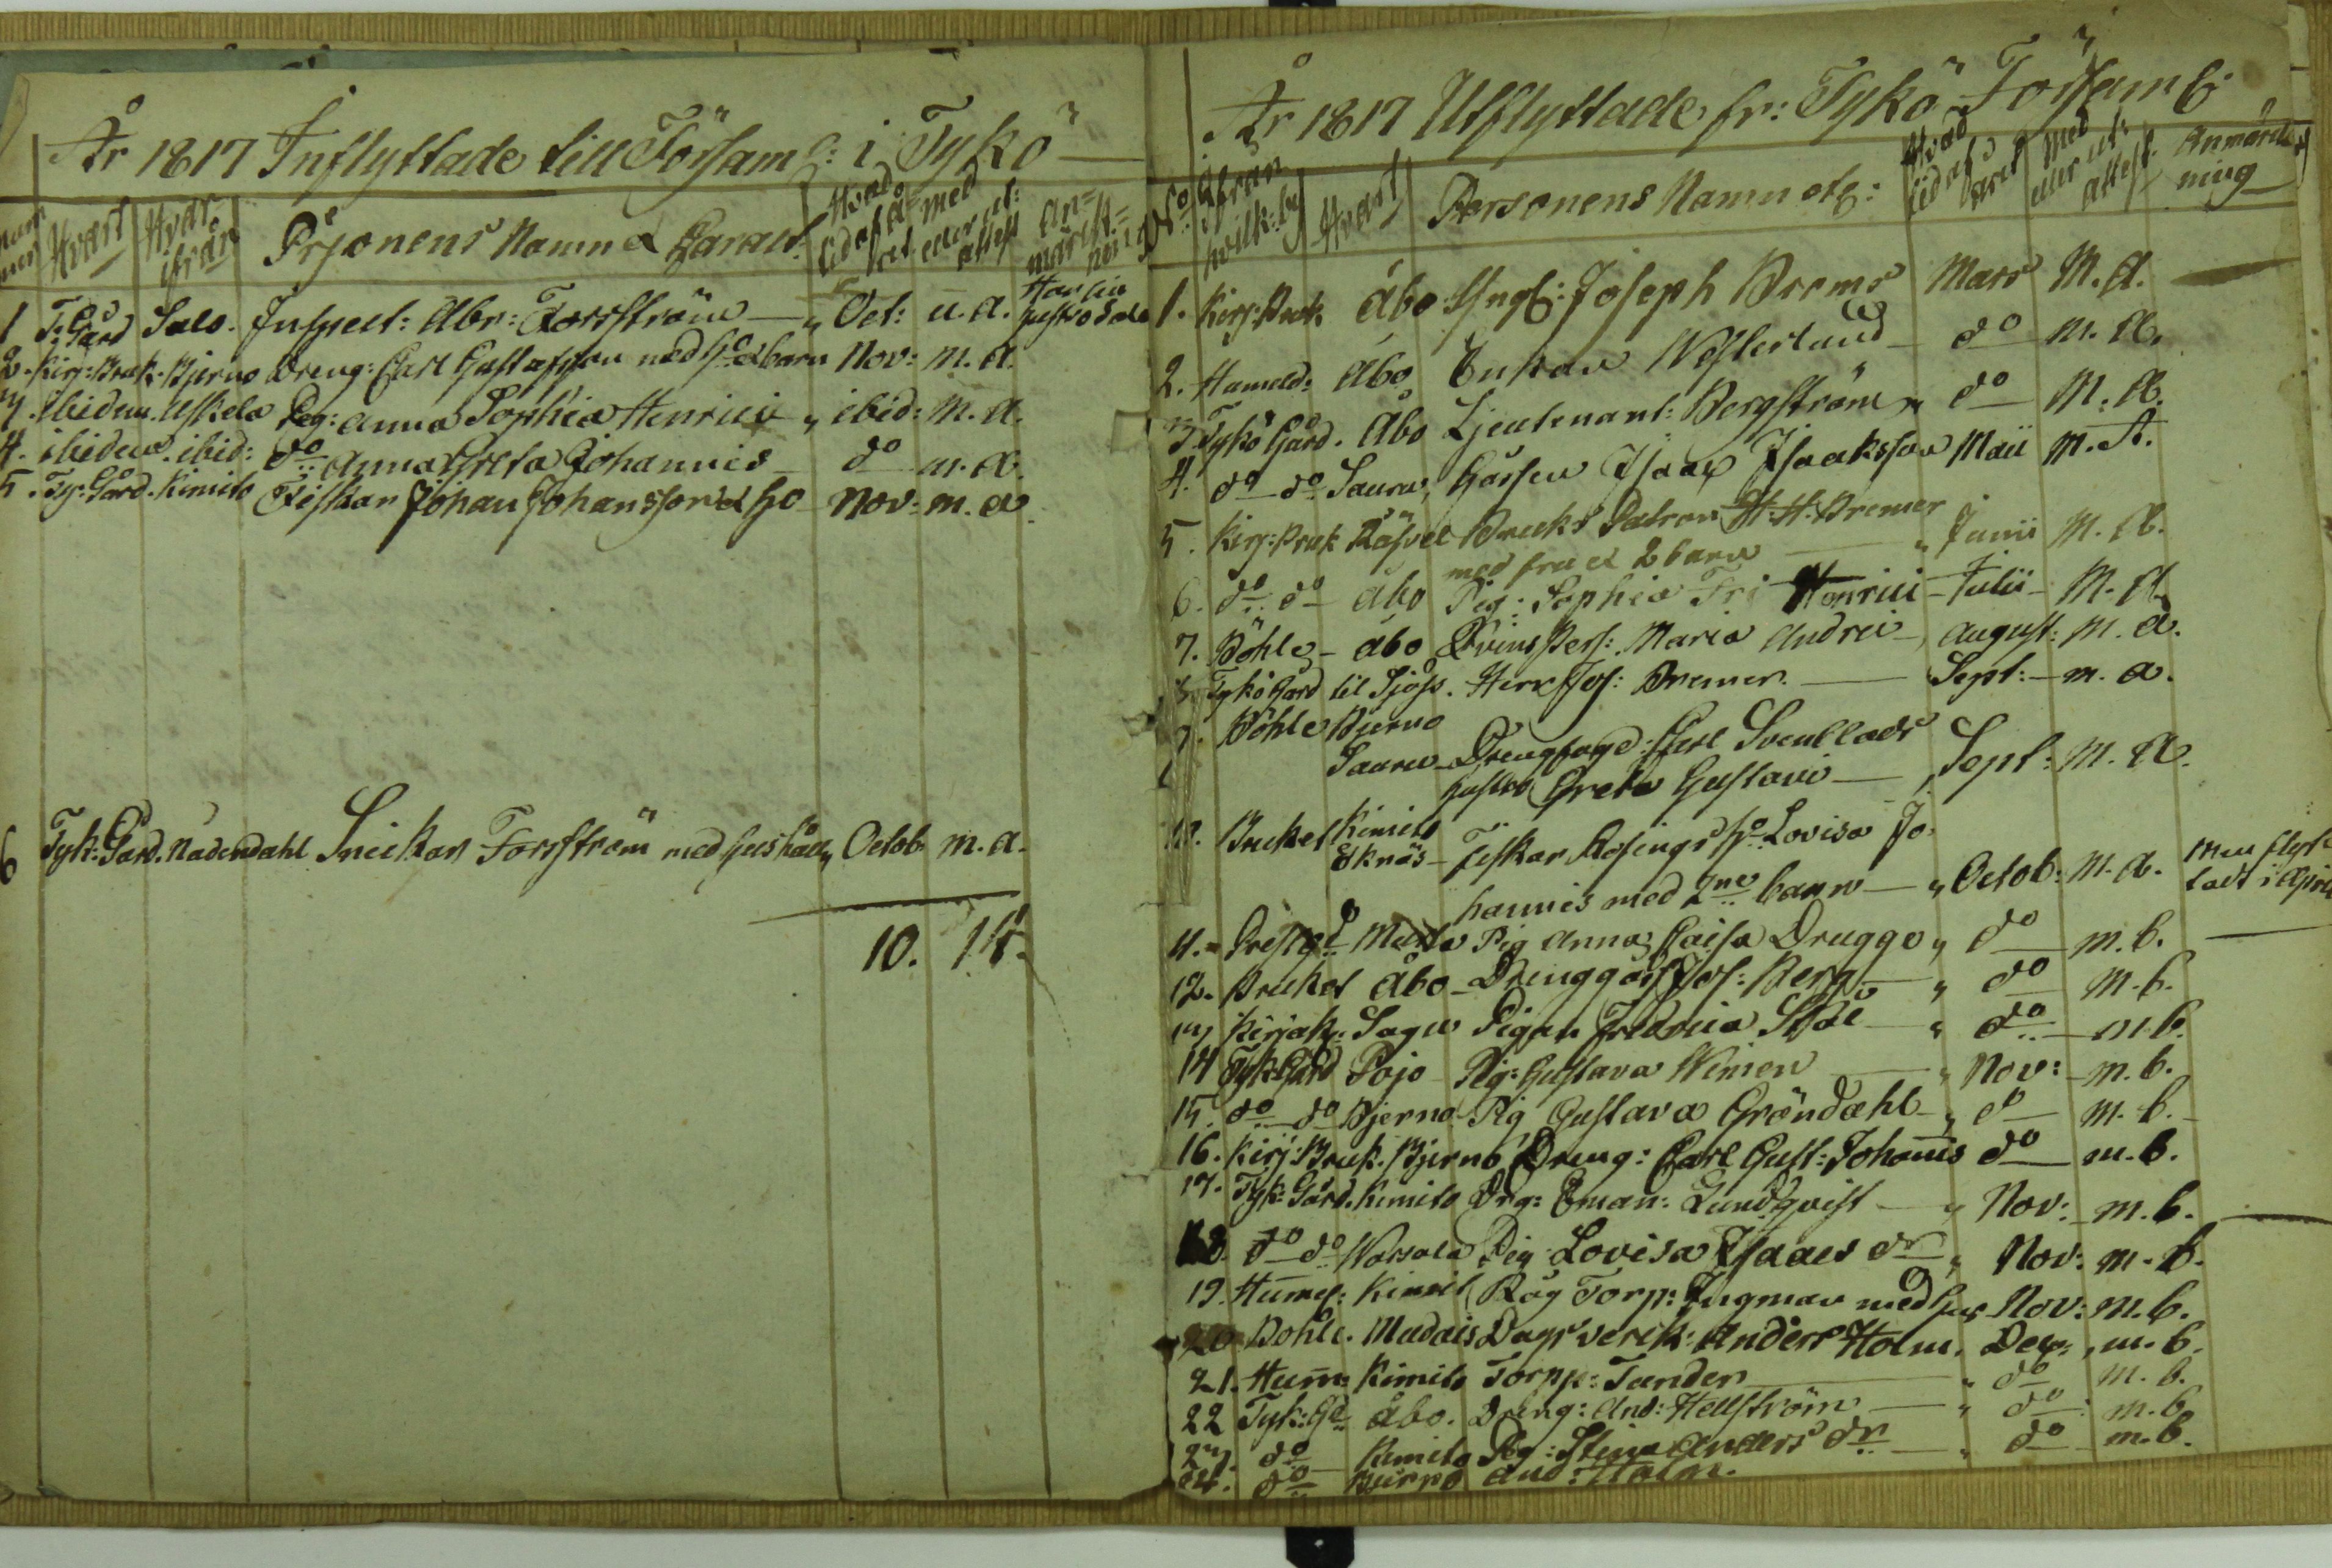 År 1817 Inflyttade till Församl: i Tykö
Hvart Hvar ifrån Persjonens Namn & Caract. Hvad tid af året med eller ut: attest anmärkn:
1 T: Gård Salo. Inspect: Abr: Forsström Oct: u. a. Har sin hustro
2. Kirj: Bruk. Bjerno Dreng: Carl Gustafsson med h:o & barn Nov: m. a.
3. ibidem. Uskela Pig: Anna Sophia Henrici ibid: m. a.
4. ibidem. ibid: do Anna Greta Johannis do m. a.
5. Ty: Gård. Kimito Fiskar Johan Johansson & ho Nov: m. a.
6 Tyk: Gård. Nådendahl Snickar Forsström med hushåll, Octob. m. a.
10. 14.
År 1817 Utflyttade fr: Tykö Församl:
No Ifrån hvilk: by Hvart Personens Namn etc: Hvad tid af året Med eller ut: attest. Anmärkning
1. Kirj: Bruk Åbo Yngl: Joseph Brems Mars M. A.
2. Humeld: Åbo Enkan Westerlund do M. A.
3. Tykö Gård. Åbo Ljeutenant: Bergström do M. A.
4. do do Sauru, Gåssen Isaac Isaaksson Maii M. A.
5. Kirj: Bruk Bruks Patron H. H. Bremer
med fru & 2 barn Junii M. A.
6. do do Åbo Pig: Sophia Henrici Julii M. A.
7. Böhle Åbo Maria Andrei August: M. A.
8. Tykö Gård til Sjöss. Herr Jos: Bremer. Sept: m. a.
9. Böhle Bjerno
Sauru Carl Svenblads
hustro Greta Gustavi Sept: M. A.
10. Bruket Kimito
Eknäs Fiskar Rosings h:o Lovisa Jo
hannis med 2ne barn Octob: M. A. Men flyt
tadt i April
11. Prestgd Pig Anna Caisa Druggo do m. b.
12. Bruket Åbo Drenggåss Jos: Berg do M. b.
13 Kirjak: Sagu Pigan Fredrica Stål do m. b.
14 Tyk: Gård Pojo Pig: Gustava Wimen Nov: m. b.
15. do do Bjerno Pig Gustava Gröndahl do m. b.
16. Kirj: Bruk. Bjerno Dreng: Carl Gust: Johanis do m. b.
17. Tyk: Gård. Kimito Drg: Eman: Lundqvist Nov: m. b.
18. do do Pig Lovisa Isaacs dr Nov: m. b.
19. Kimit Torp: Ingman med hus Nov: m. b.
20 Bohle. Anders Holm. Dec: m. b.
21. Hum: Kimito Torpp: Tunder do m. b.
22 Tyk: Gd Åbo. Dreng: And: Hellström do m. b.
23. do Kimito Pig: Stina Anders dr do m. b.
24. do And: Holm.